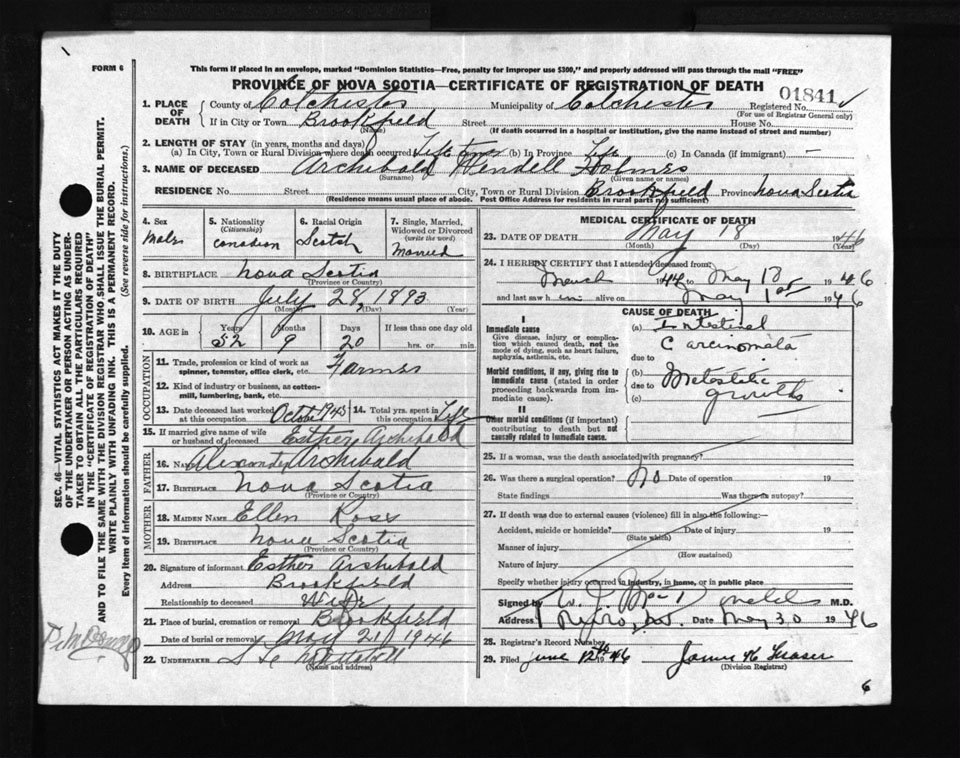 FORM 6
This form if placed in an envelope, marked "Dominion Statistics—Free, penalty for improper use $300," and properly addressed will pass through the mail "FREE"
PROVINCE OF NOVA SCOTIA—CERTIFICATE OF REGISTRATION OF DEATH
01841
1. PLACE OF DEATH County of Colchester Municipality of Colchester Registered No.
(For use of Registrar General only)
If in City or Town Brookfield Street House No.
(Name) (If death occurred in a hospital or institution, give the name instead of street and number)
2. LENGTH OF STAY (in years, months and days)
(a) In City, Town or Rural Division where death occurred Life time (b) In Province Life (c) In Canada (if immigrant) —
3. NAME OF DECEASED Archibald Wendell Holmes
(Surname) (Given name or names)
RESIDENCE No. Street City, Town or Rural Division Brookfield Province Nova Scotia
(Residence means usual place of abode. Post Office Address for residents in rural parts not sufficient)
4. Sex Male
5. Nationality (Citizenship) Canadian
6. Racial Origin Scotch
7. Single, Married, Widowed or Divorced (write the word) Married
8. BIRTHPLACE Nova Scotia
(Province or Country)
9. DATE OF BIRTH July 28, 1893
(Month) (Day) (Year)
10. AGE in Years 52 Months 9 Days 20 If less than one day old hrs. or min.
OCCUPATION
11. Trade, profession or kind of work as spinner, teamster, office clerk, etc. Farmer
12. Kind of industry or business, as cotton-mill, lumbering, bank, etc.
13. Date deceased last worked at this occupation Octob 1945 14. Total yrs. spent in this occupation Life
15. If married give name of wife or husband of deceased Esther Archibald
FATHER
16. NAME Alexander Archibald
17. BIRTHPLACE Nova Scotia
(Province or Country)
MOTHER
18. MAIDEN NAME Ellen Ross
19. BIRTHPLACE Nova Scotia
(Province or Country)
20. Signature of informant Esther Archibald
Address Brookfield
Relationship to deceased Wife
21. Place of burial, cremation or removal Brookfield
Date of burial or removal May 21 1946
22. UNDERTAKER
(Name and address)
MEDICAL CERTIFICATE OF DEATH
23. DATE OF DEATH May 18 1946
(Month) (Day) (Year)
24. I HEREBY CERTIFY that I attended deceased from:
March 1946 to May 18 1946
and last saw him alive on May 1st 1946
CAUSE OF DEATH
I
Immediate cause
Give disease, injury or complication which caused death, not the mode of dying, such as heart failure, asphyxia, asthenia, etc.
(a) Intestinal
Carcinomata
due to
Morbid conditions, if any, giving rise to immediate cause (stated in order proceeding backwards from immediate cause).
(b) Metastatic
due to growths
(c)
II
Other morbid conditions (if important) contributing to death but not causally related to immediate cause.
25. If a woman, was the death associated with pregnancy?
26. Was there a surgical operation? No Date of operation 19
State findings Was there autopsy?
27. If death was due to external causes (violence) fill in also the following:—
Accident, suicide or homicide? Date of injury 19
(State which)
Manner of injury
(How sustained)
Nature of injury
Specify whether injury occurred in industry, in home, or in public place
Signed by M.D.
Address Date May 30 1946
28. Registrar's Record Number
29. Filed June 12th 46 Fraser
(Division Registrar)
6
SEC. 46—VITAL STATISTICS ACT MAKES IT THE DUTY
OF THE UNDERTAKER OR PERSON ACTING AS UNDER-
TAKER TO OBTAIN ALL THE PARTICULARS REQUIRED
IN THE "CERTIFICATE OF REGISTRATION OF DEATH"
AND TO FILE THE SAME WITH THE DIVISION REGISTRAR WHO SHALL ISSUE THE BURIAL PERMIT.
WRITE PLAINLY WITH UNFADING INK. THIS IS A PERMANENT RECORD.
Every item of information should be carefully supplied. (See reverse side for instructions.)